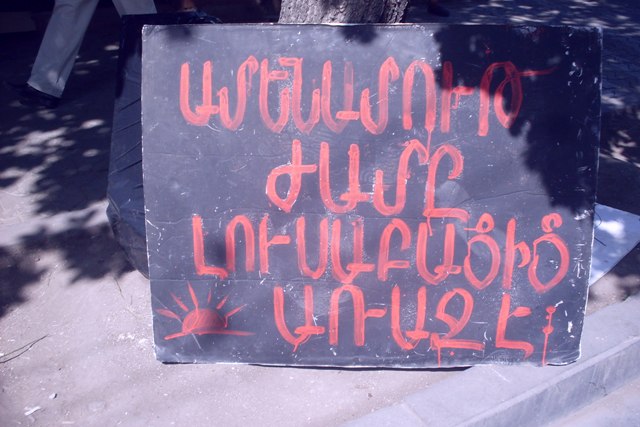 ԱՄԵՆԱՄՈՒԹ
ԺԱՄԸ
ԼՈՒՍԱԲԱՑԻՑ
ԱՌԱՋ Է: